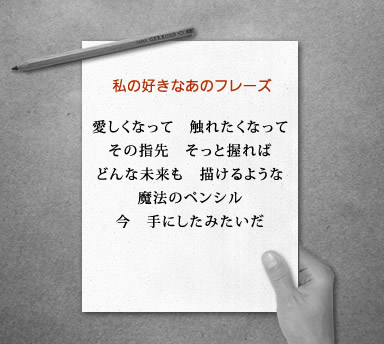 私の好きなあのフレーズ
愛しくなって　触れたくなって
その指先　そっと握れば
どんな未来も　描けるような
魔法のペンシル
今　手にしたみたいだ